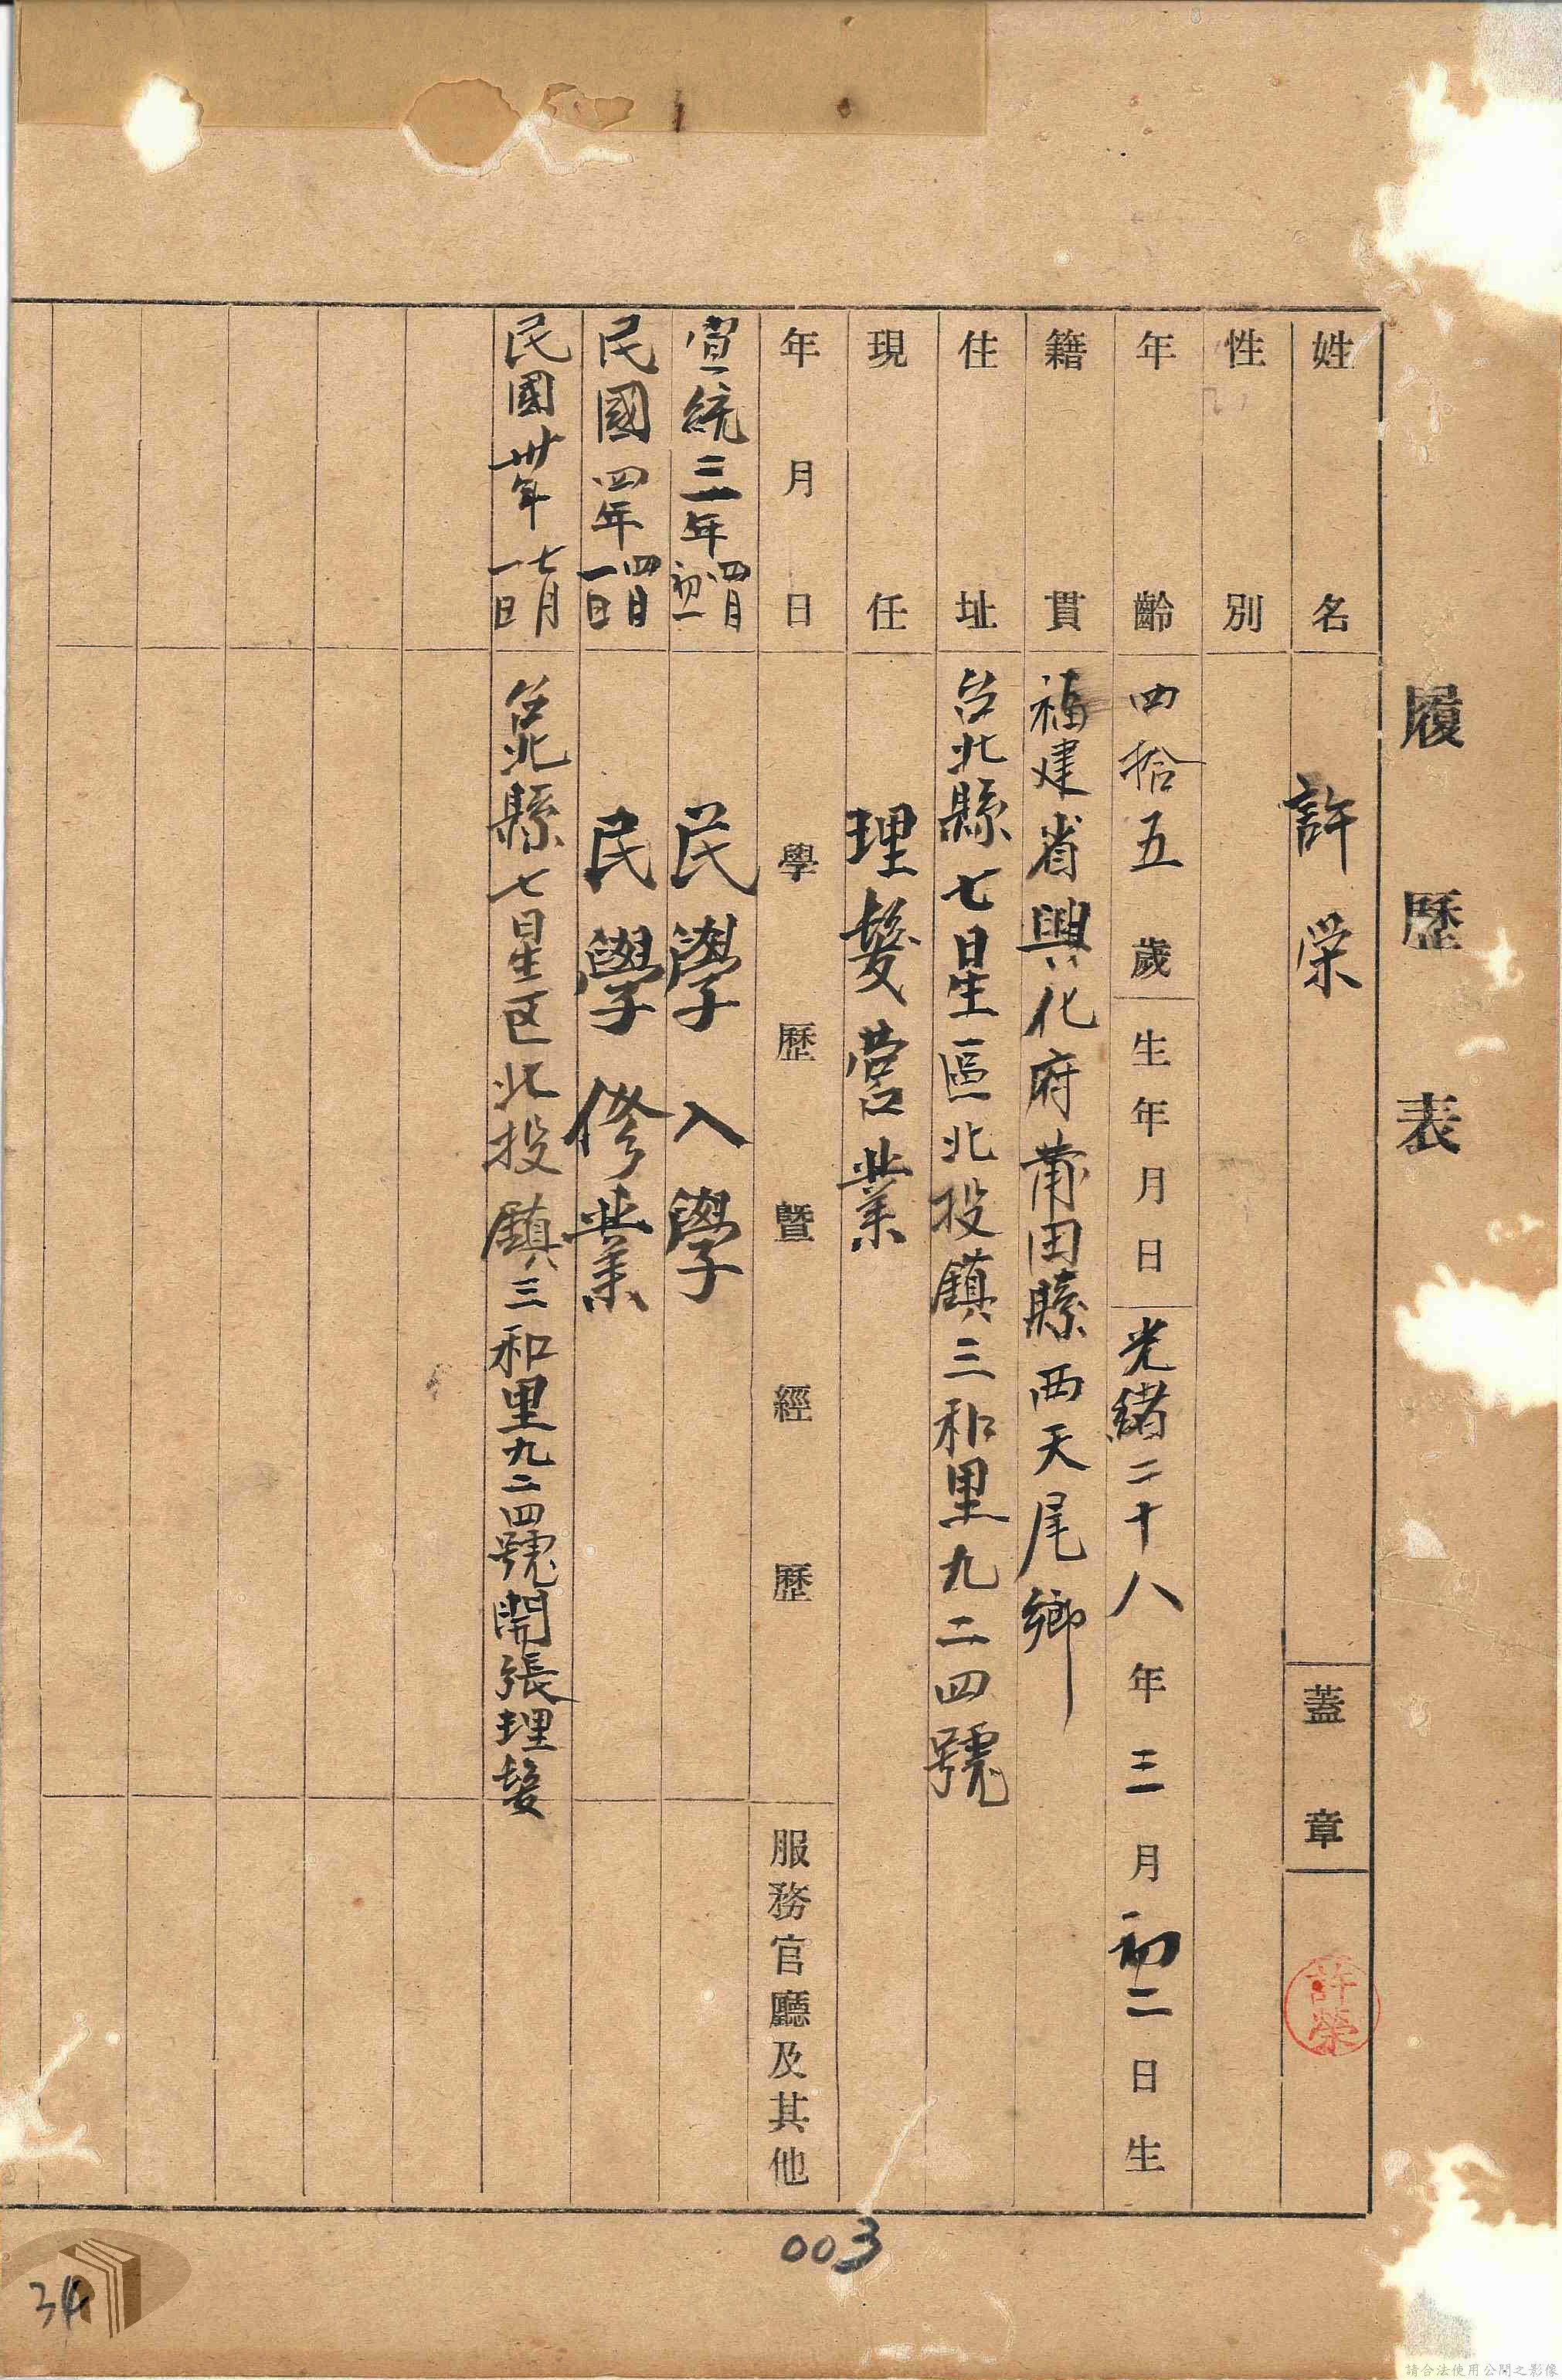 履歷表
姓名 許荣 蓋章 許榮
性別
年齡 四拾五歲 生年月日 光緒二十八年三月初二日生
籍貫 福建省興化府莆田縣西天尾鄉
住址 台北縣七星區北投鎮三和里九二四號
現任 理髮营業
年月日 學歷暨經歷 服務官廳及其他
宣統三年四月初一 民學入學
民國四年四月一日 民學修業
民國卅年七月一日 台北縣七星区北投鎮三和里九二四號開張理髮
003
34
請合法使用公開之影像